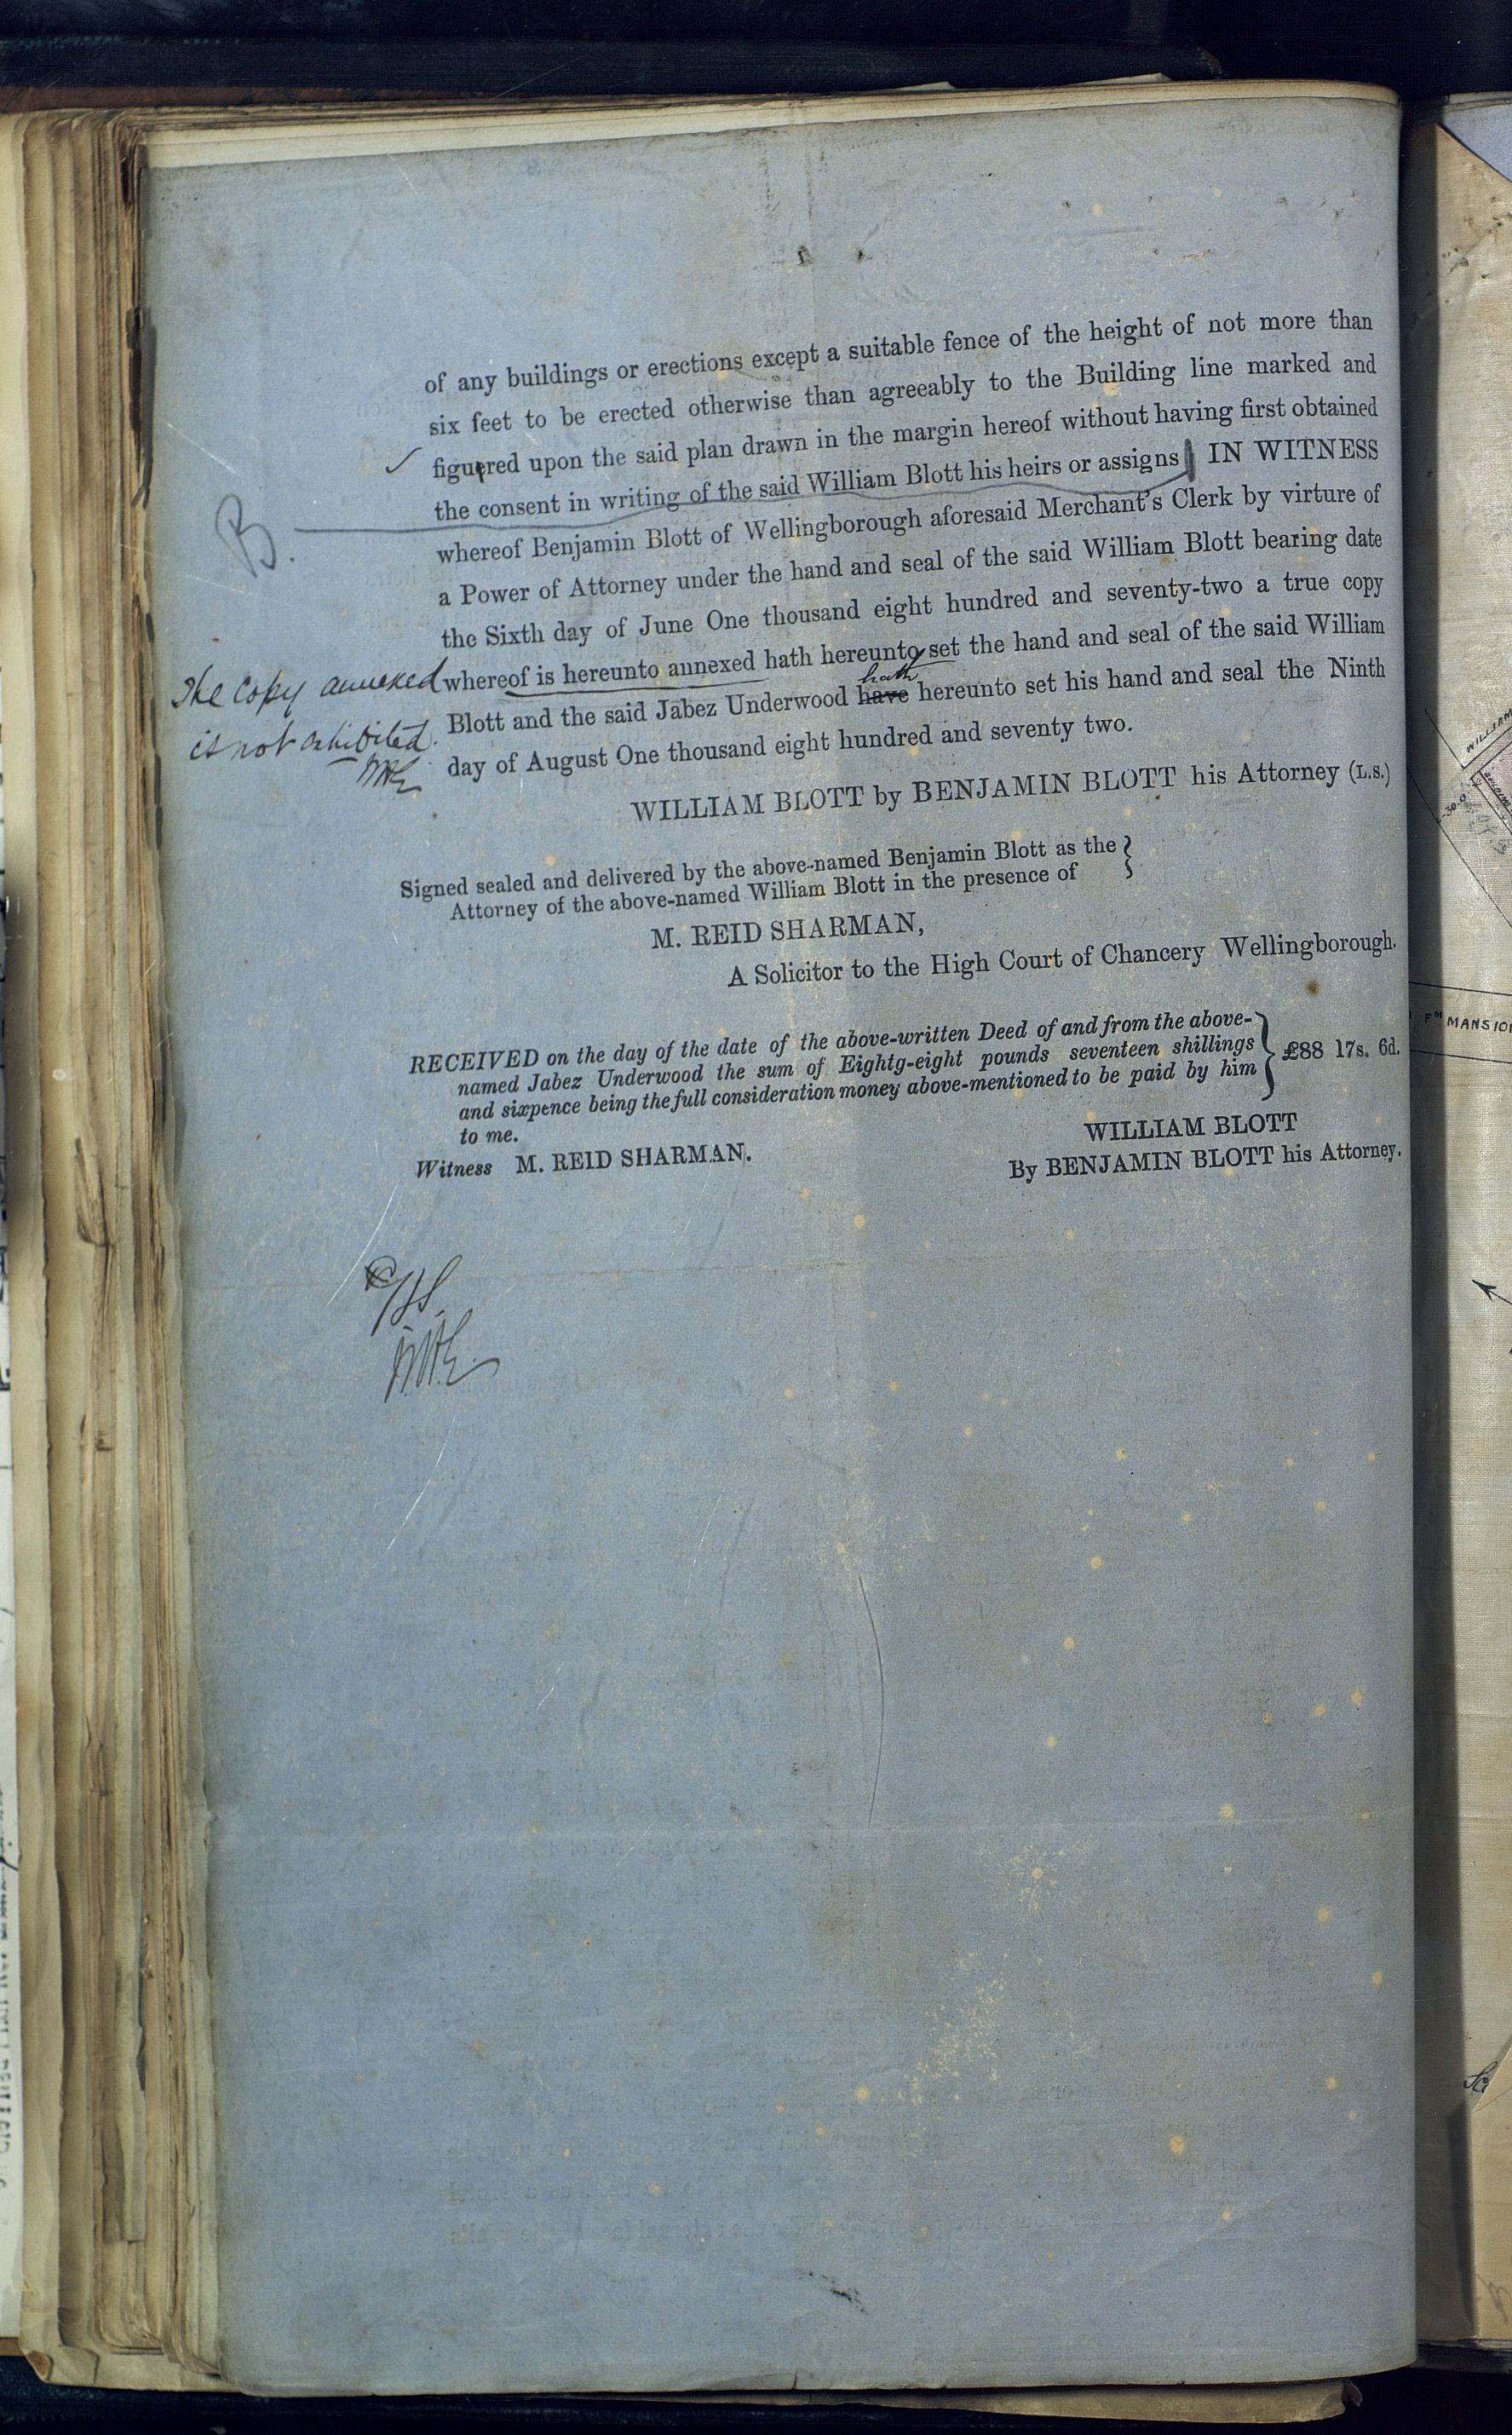 of any buildings or erections except a suitable fence of the height of not more than
six feet to be erected otherwise than agreeably to the Building line marked and
figuered upon the said plan drawn in the margin hereof without having first obtained
the consent in writing of the said William Blott his heirs or assigns] IN WITNESS
B.
whereof Benjamin Blott of Wellingborough aforesaid Merchant's Clerk by virture of
a Power of Attorney under the hand and seal of the said William Blott bearing date
the Sixth day of June One thousand eight hundred and seventy-two a true copy
whereof is hereunto annexed hath hereunto set the hand and seal of the said William
The copy annexed
is not exhibited.
hath
Blott and the said Jabez Underwood have hereunto set his hand and seal the Ninth
day of August One thousand eight hundred and seventy two.
WILLIAM BLOTT by BENJAMIN BLOTT his Attorney (L.S.)
Signed sealed and delivered by the above-named Benjamin Blott as the
Attorney of the above-named William Blott in the presence of
M. REID SHARMAN,
A Solicitor to the High Court of Chancery Wellingborough.
RECEIVED on the day of the date of the above-written Deed of and from the above-
named Jabez Underwood the sum of Eightg-eight pounds seventeen shillings
and sixpence being the full consideration money above-mentioned to be paid by him
to me.
£88 17s. 6d.
WILLIAM BLOTT
By BENJAMIN BLOTT his Attorney.
Witness M. REID SHARMAN.
WILLIAM
30.0
Fᴹ MANSION